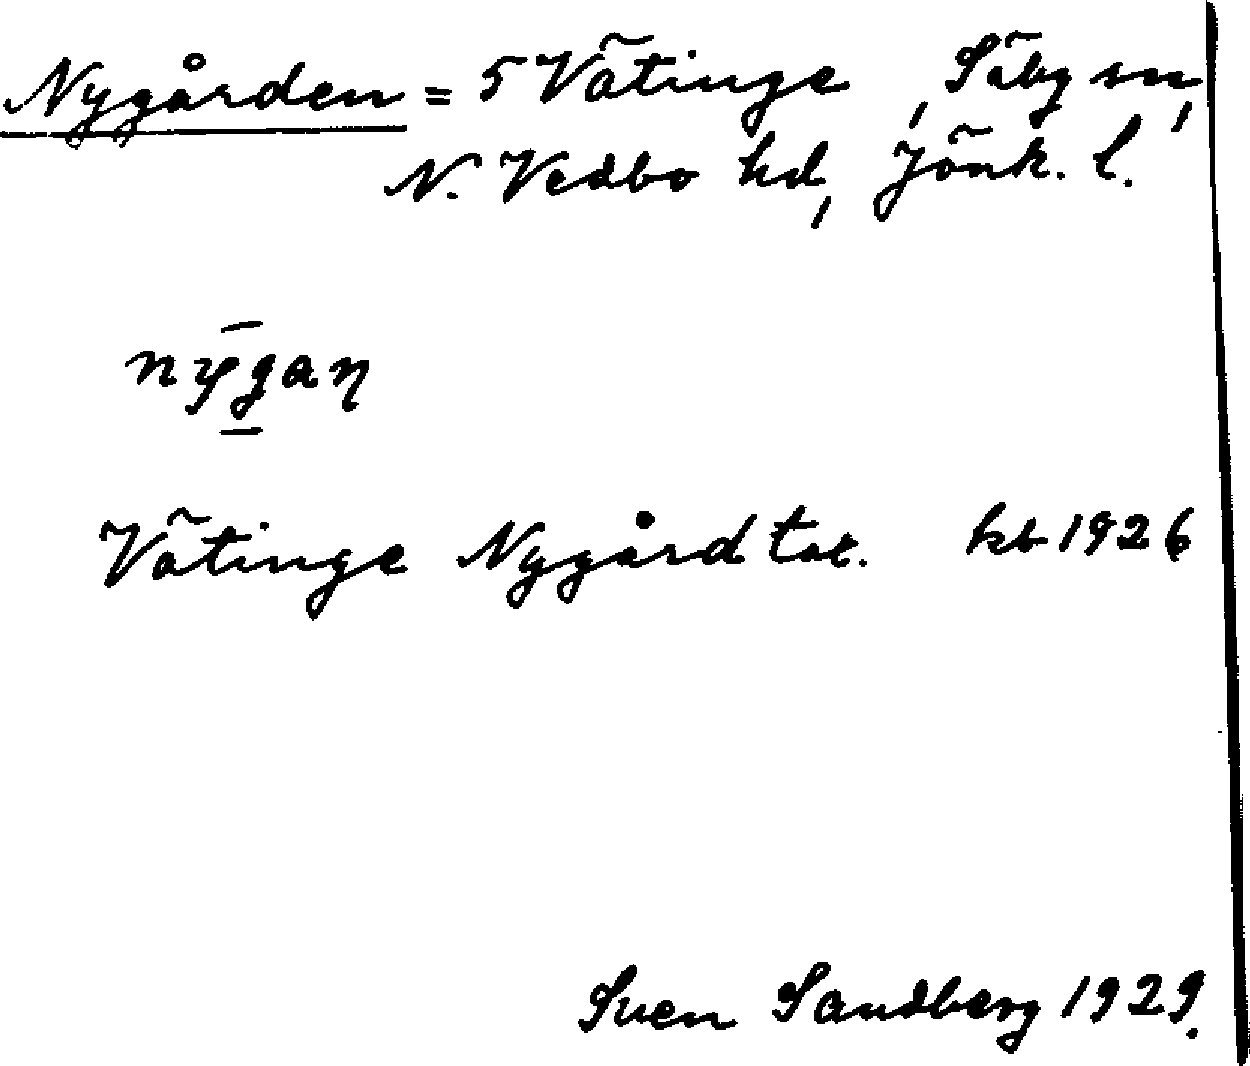 Nygården = 5 Vätinge, Säby sn,
N. Vedbo hd, Jönk. l.
nȳg̱aṇ
Vätinge Nygård tot. kb 1926
Sven Sandberg 1929.